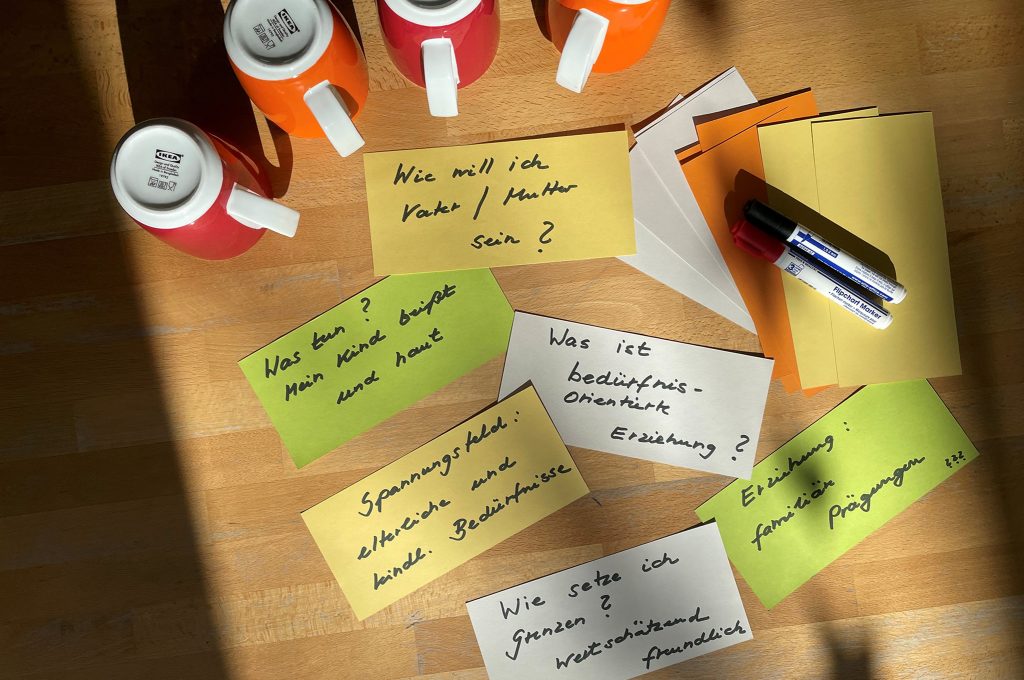 IKEA
IKEA
Wie will ich
Vater / Mutter
sein ?
Was tun ?
Mein Kind beißt
und haut
Was ist
bedürfnis-
orientierte
Erziehung ?
Spannungsfeld :
elterliche und
kindl. Bedürfnisse
Erziehung :
familiär
Prägungen ???
Wie setze ich
Grenzen ?
wertschätzend
freundlich
Flipchart Marker